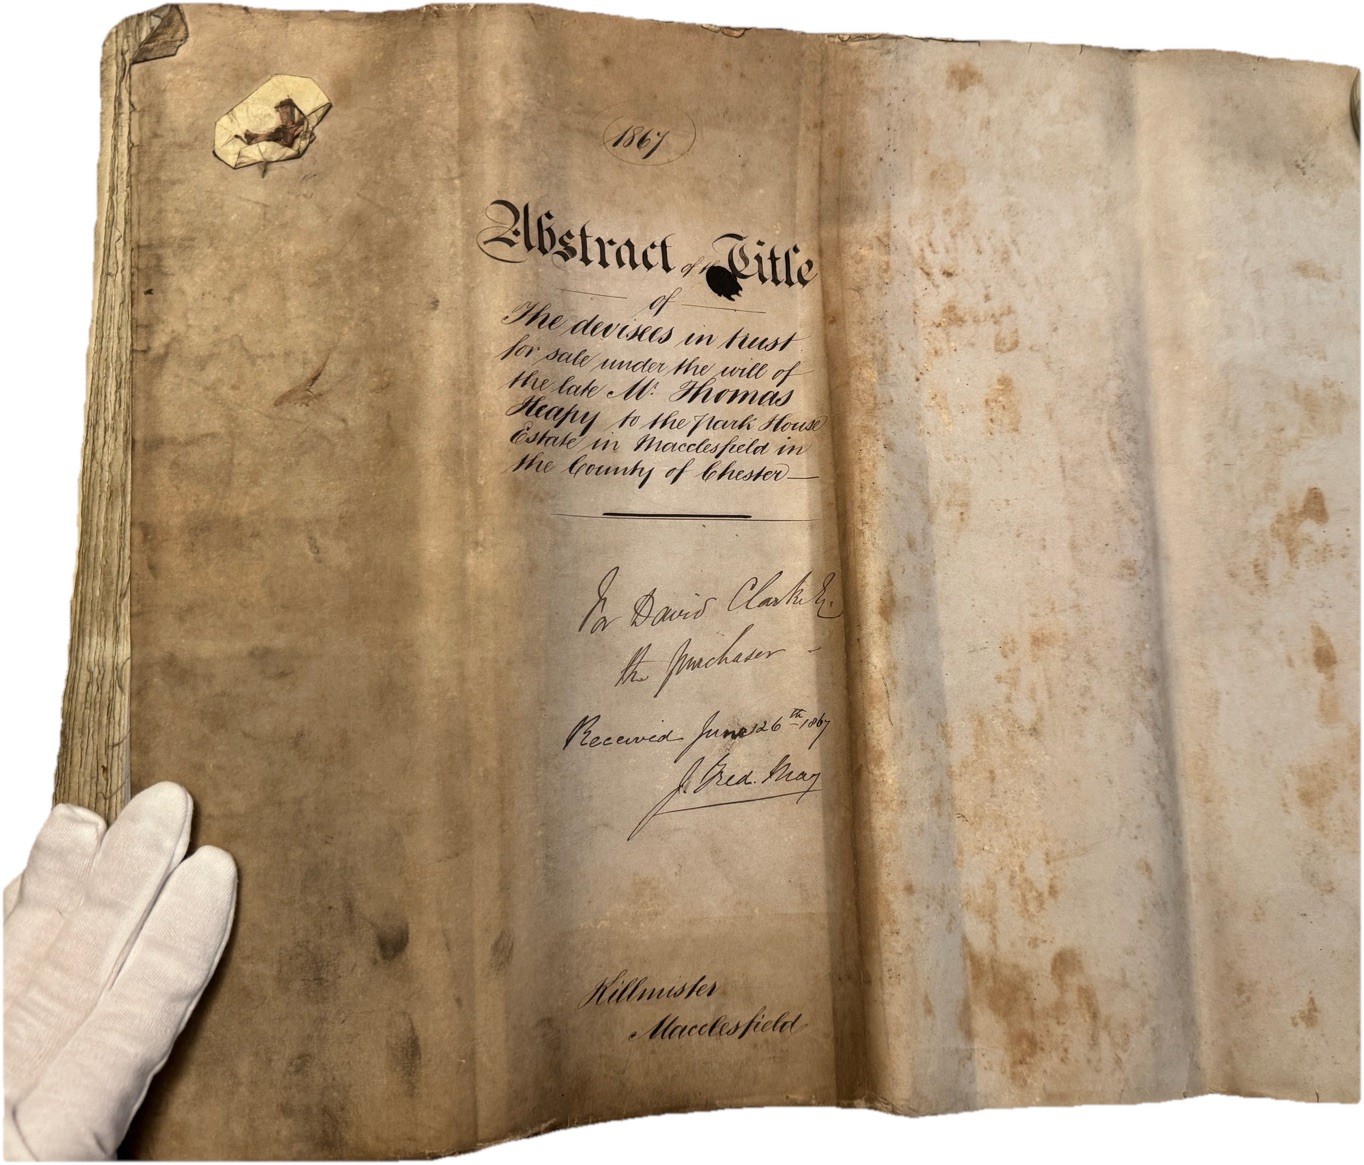 1867
Abstract of the Title
of
The devisees in trust
for sale under the will of
the late Mr. Thomas
Heapy to the Park House
Estate in Macclesfield in
the County of Chester—
For David Clarke Esq.
the purchaser –
Received June 26th 1867
J. Fred. May
Killmister
Macclesfield